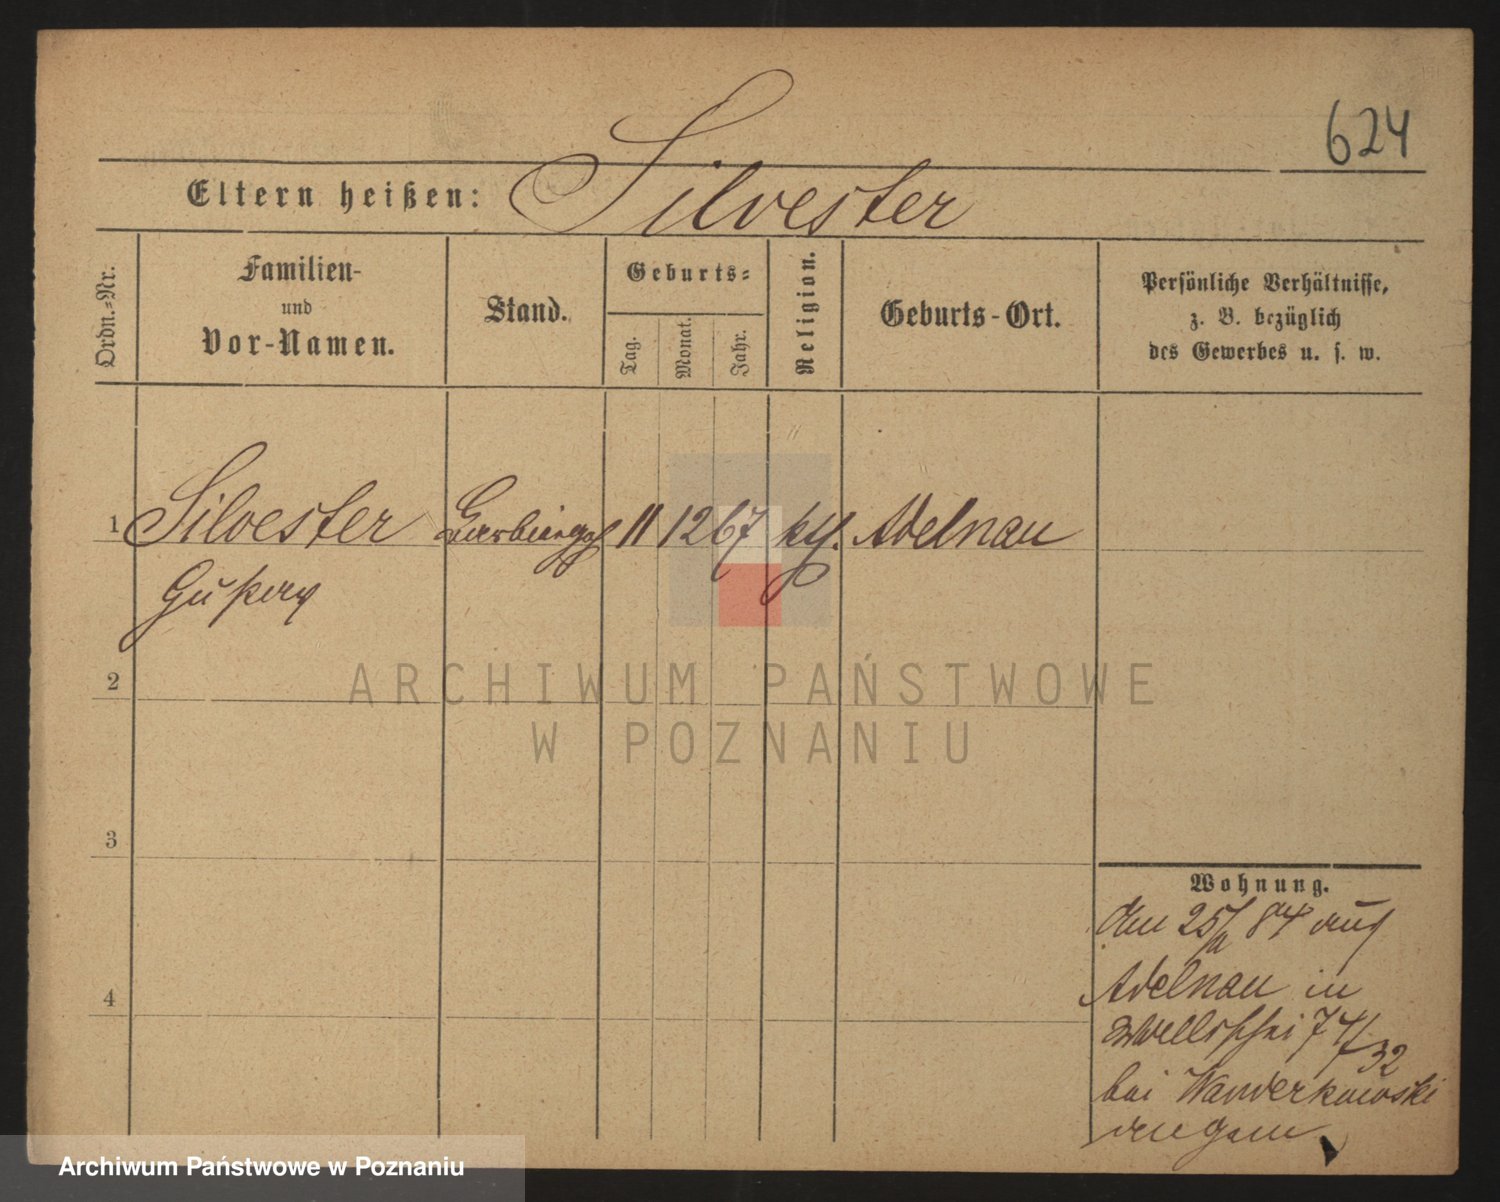 624
Eltern heißen: Silvester
Ordn.-Nr.
Familien-
und
Vor-Namen.
Stand.
Geburts-
Tag.
Monat.
Jahr.
Religion.
Geburts-Ort.
Persönliche Verhältnisse,
z. B. bezüglich
des Gewerbes u. s. w.
1 Silvester 11 12 67 kth. Adelnau
Gustav
2
3
4
Wohnung.
Am 25/ 84 aus
Adelnau in
74/32
bei Wanderkowski
angem.
ARCHIWUM PAŃSTWOWE
W POZNANIU
Archiwum Państwowe w Poznaniu